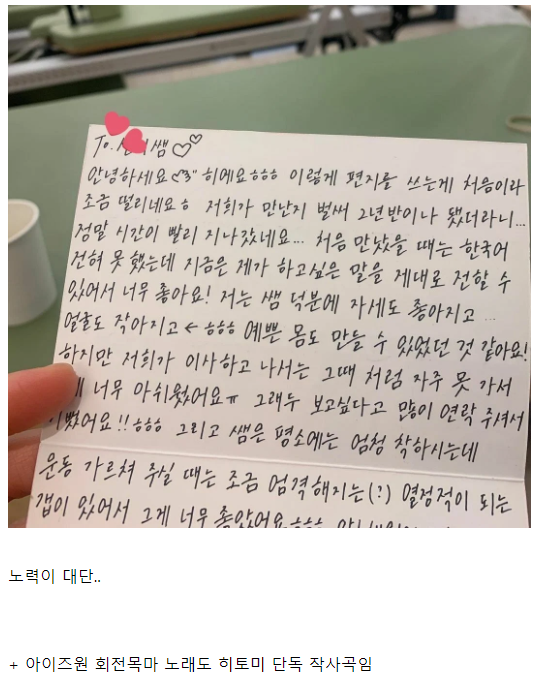 To. 쌤♡♡
안녕하세요 히에요ㅎㅎㅎ 이렇게 편지를 쓰는게 처음이라
조금 떨리네요ㅎ 저희가 만난지 벌써 2년반이나 됐더라니...
정말 시간이 빨리 지나갔네요... 처음 만났을 때는 한국어
전혀 못 했는데 지금은 제가 하고싶은 말을 제대로 전할 수
있어서 너무 좋아요! 저는 쌤 덕분에 자세도 좋아지고...
얼굴도 작아지고← ㅎㅎㅎ 예쁜 몸도 만들 수 있었던 것 같아요!
하지만 저희가 이사하고 나서는 그때 처럼 자주 못 가서
너무 아쉬웠어요ㅠ 그래두 보고싶다고 많이 연락 주셔서
뻤어요!!ㅎㅎㅎ 그리고 쌤은 평소에는 엄청 착하시는데
운동 가르쳐 주실 때는 조금 엄격해지는(?) 열정적이 되는
갭이 있어서 그게 너무 좋았어요ㅎㅎㅎ
노력이 대단..
+ 아이즈원 회전목마 노래도 히토미 단독 작사곡임